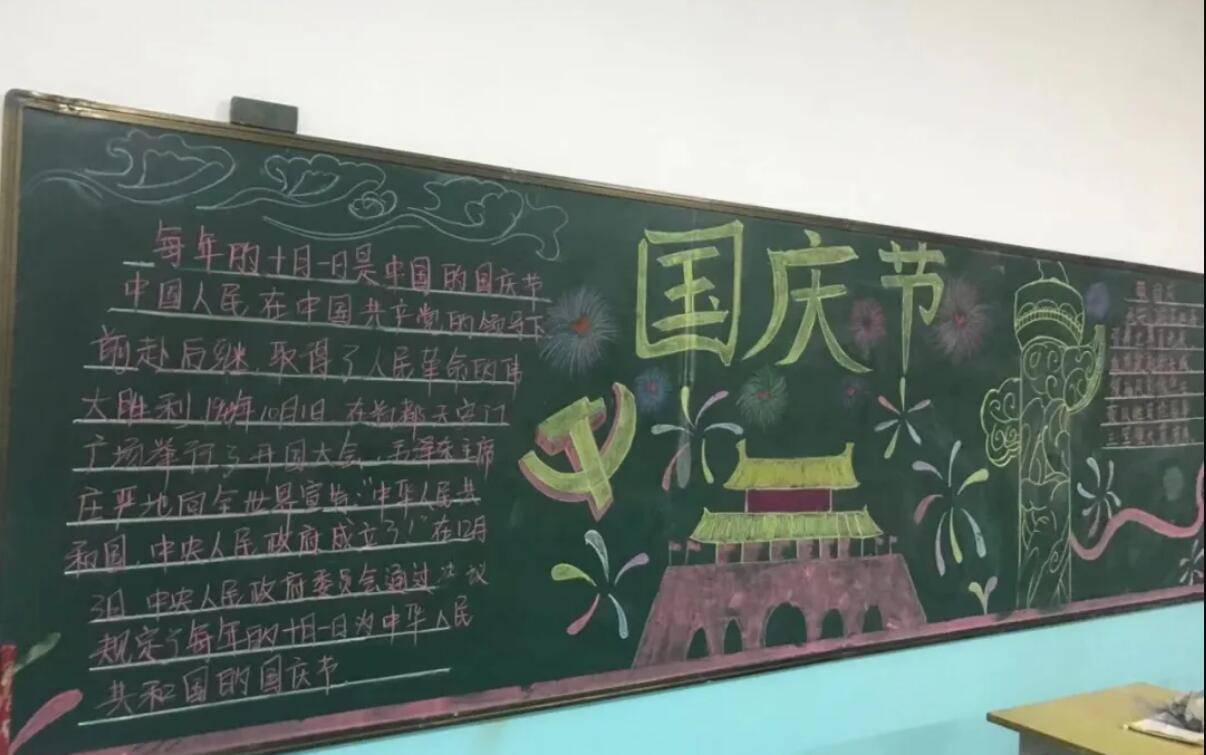 每年的十月一日是中国的国庆节
中国人民在中国共产党的领导下
前赴后继.取得了人民革命的伟
大胜利1949年10月1日在首都天安门
广场举行了开国大会.毛泽东主席
庄严地向全世界宣告:“中华人民共
和国.中央人民政府成立了!”在12月
3日.中央人民政府委员会通过决议
规定了每年的十月一日为中华人民
共和国的国庆节
国庆节